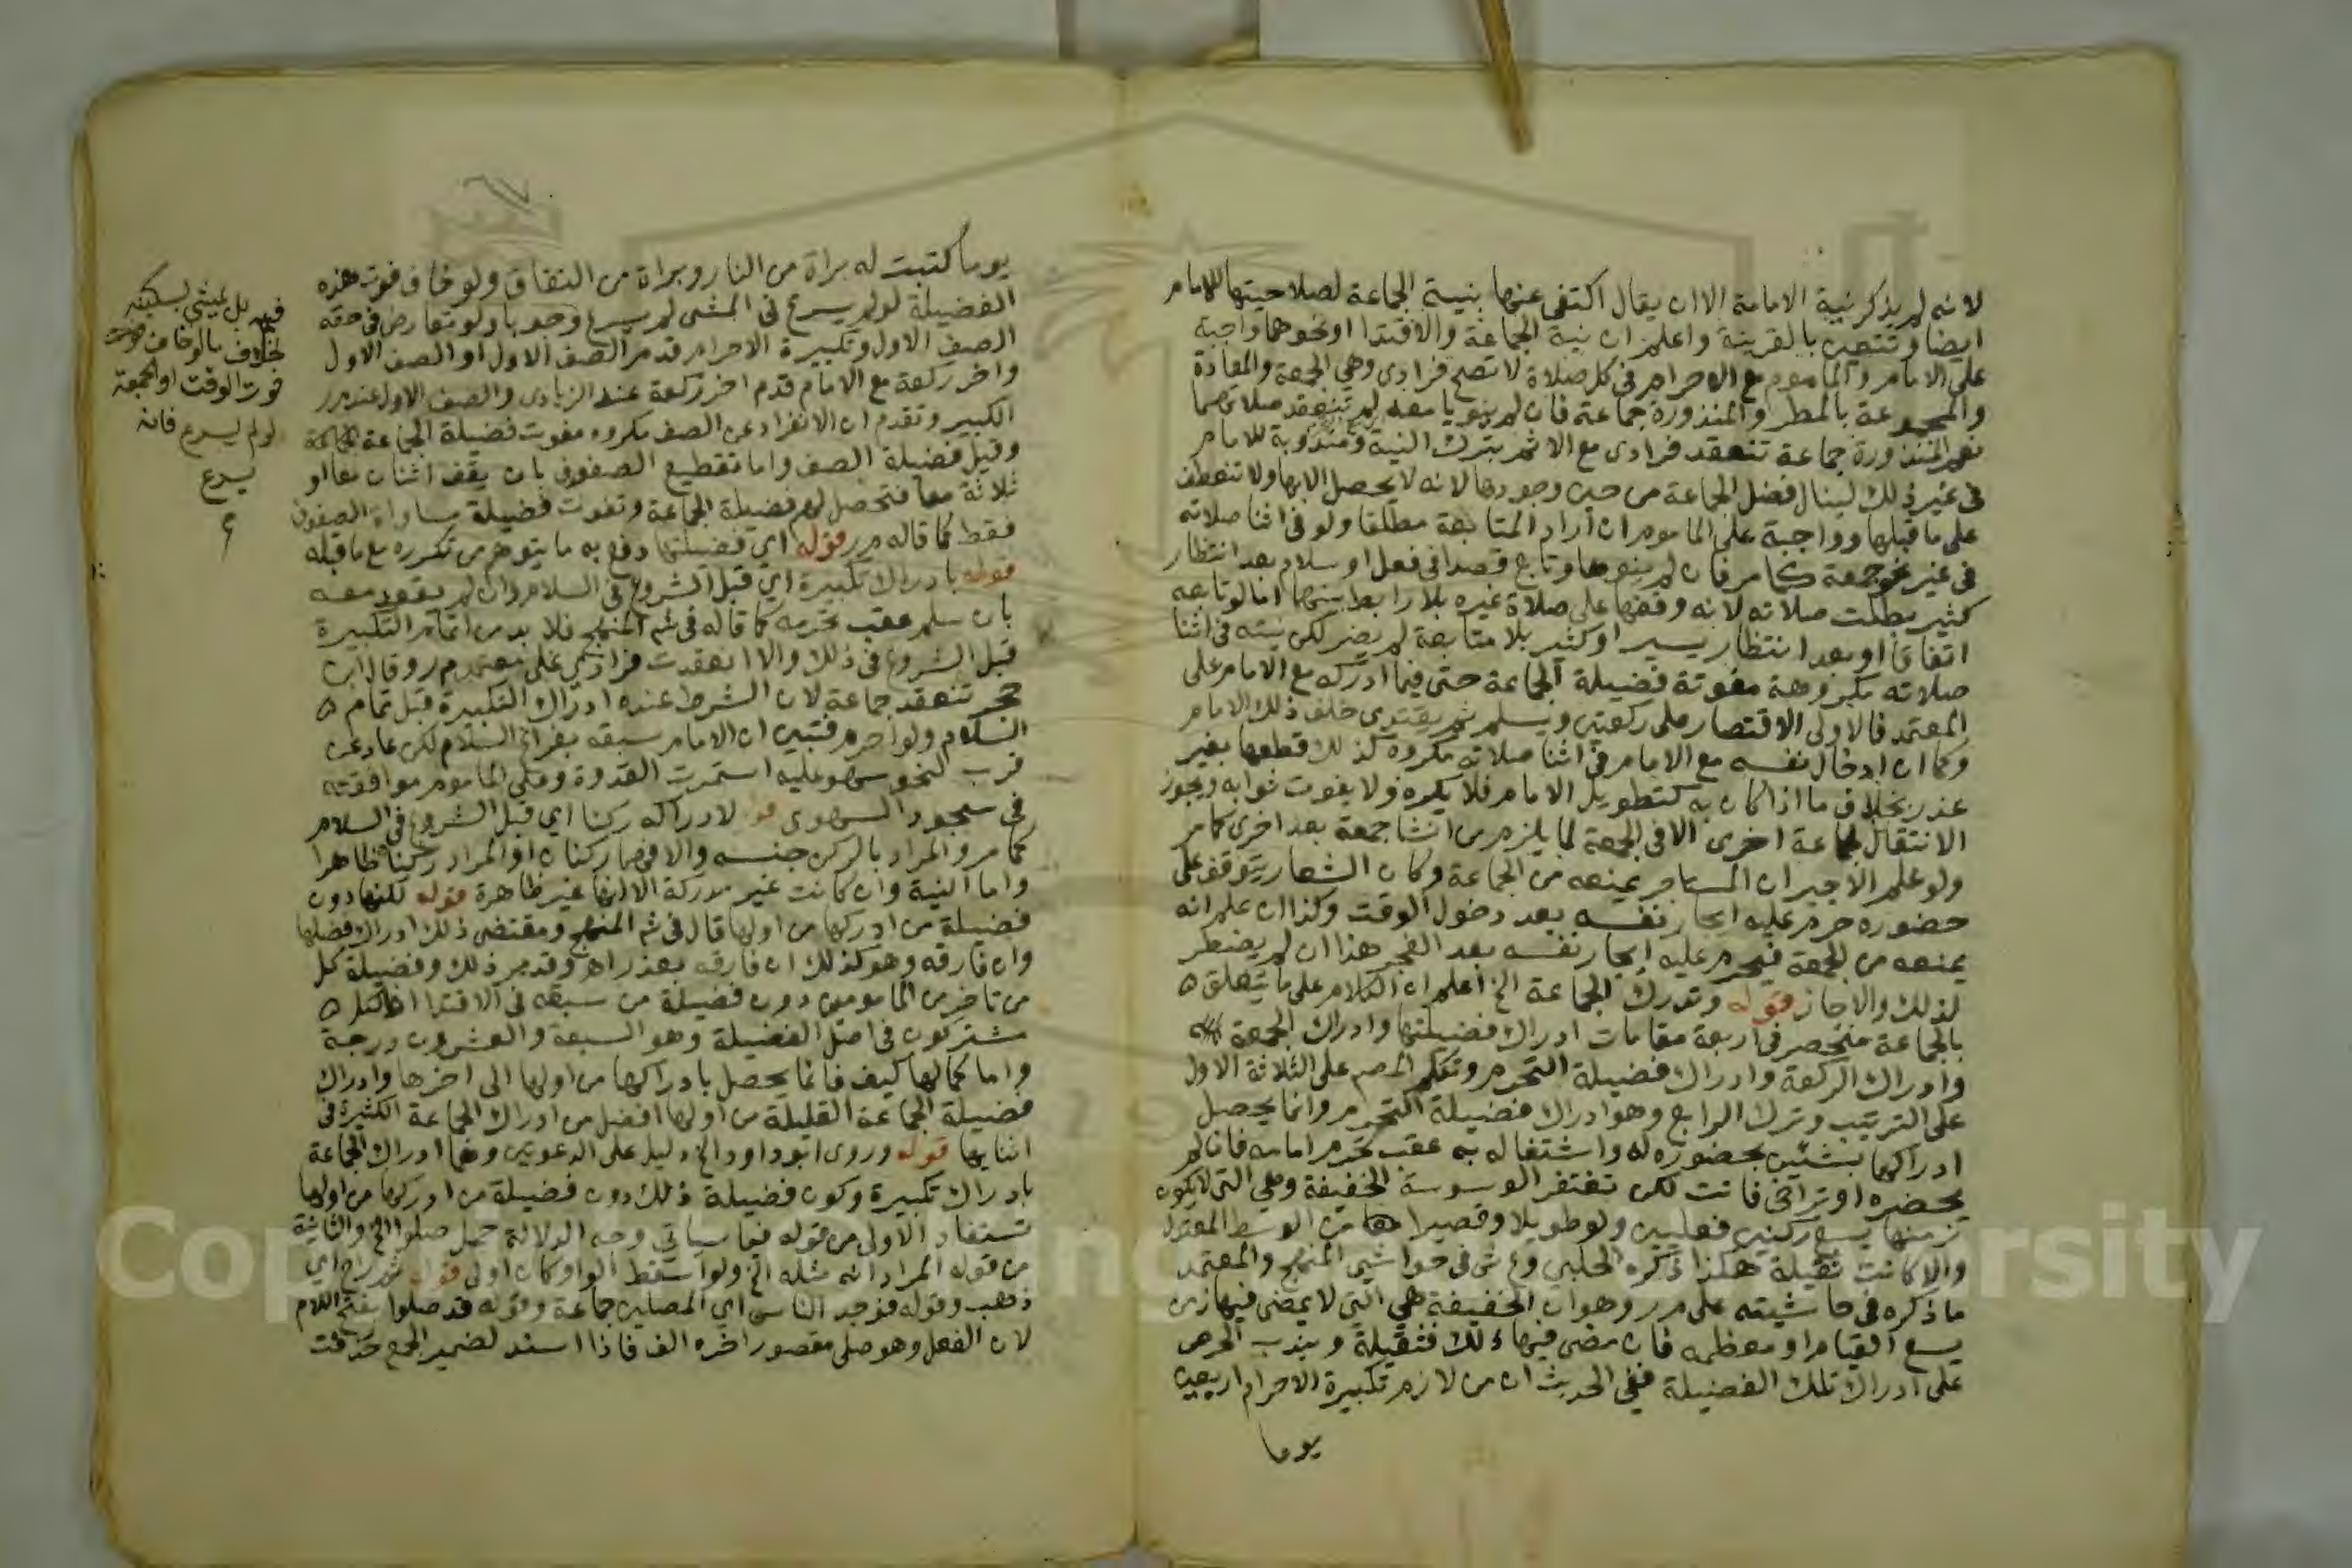 لانه لم يذكر نية الامامة الا ان يقال اكتفى عنها بنية الجماعة لصلاحيتها للامام
ايضا وتتعين بالقرينة واعلم ان نية الجماعة والاقتدا او نحوهما واجبة
على الامام والماموم مع الاحرام في كل صلاة لا تصح فرادى وهي الجمعة والمعادة
والمجموعة بالمطر والمنذورة جماعة فان لم ينويا معه لم تنعقد صلاتهما
نعم المنذورة جماعة تنعقد فرادى مع الاثم بترك النية ومندوبة للامام
في غير ذلك لينال فضل الجماعة من حين وجودها لانه لا يحصل الا بها ولا تنعطف
على ما قبلها وواجبة على الماموم ان اراد المتابعة مطلقا ولو في اثنا صلاته
في غير نحو جمعة كما مر فان لم ينوها وتابع قصدا في فعل او سلام بعد انتظار
كثير بطلت صلاته لانه وقفها على صلاة غيره بلا رابط بينهما اما لو تابعه
اتفاقا او بعد انتظار يسير او كثير بلا متابعة لم يضر لكن نيته في اثنا
صلاته مكروهة مفوتة فضيلة الجماعة حتى فيما ادركه مع الامام على
المعتمد فالاولى الاقتصار على ركعتين ويسلم ثم يقتدي خلف ذلك الامام
وكما ان ادخال نفسه مع الامام في اثنا صلاته مكروه كذلك قطعها بغير
عذر بخلاف ما اذا كان به كتطويل الامام فلا يكره ولا يفوت ثوابه ويجوز
الانتقال لجماعة اخرى الا في الجمعة لما يلزم من انشا جمعة بعد اخرى كما مر
ولو علم الاجير ان المستاجر يمنعه من الجماعة وكان الشعار يتوقف على
حضوره حرم عليه ايجار نفسه بعد دخول الوقت وكذا ان علم انه
يمنعه من الجمعة فيحرم عليه ايجار نفسه بعد الفجر هذا ان لم يضطر
لذلك والا جاز قوله وتدرك الجماعة الخ اعلم ان الكلام على ما يتعلق
بالجماعة منحصر في اربعة مقامات ادراك فضيلتها وادراك الجمعة
وادراك الركعة وادراك فضيلة التحرم وتكلم المص على الثلاثة الاول
على الترتيب وترك الرابع وهو ادراك فضيلة التحرم وانما يحصل
ادراكها بشيئين بحضوره له واشتغاله به عقب تحرم امامه فان لم
يحضره او تراخى فاتت لكن تغتفر الوسوسة الخفيفة وهي التي لا يكون
زمنها يسع ركنين فعليين ولو طويلا وقصيرا من الوسط المعتدل
والا كانت ثقيلة هكذا ذكره الحلبي وع ش في حواشي المنهج والمعتمد
ما ذكره في حاشيته على م ر وهو ان الخفيفة هي التي لا يمضي فيها زمن
يسع القيام او معظمه فان مضى فيها ذلك فثقيلة ويندب الحرص
على ادراك تلك الفضيلة ففي الحديث ان من لازم تكبيرة الاحرام اربعين
يوما
يوما كتبت له براة من النار وبراة من النفاق ولو خاف فوت هذه
الفضيلة لو لم يسرع في المشي لم يسرع وجوبا ولو تعارض في حقه
الصف الاول وتكبيرة الاحرام قدم الصف الاول او الصف الاول
واخر ركعة مع الامام قدم اخر ركعة عند الزيادي والصف الاول عند م ر
الكبير وتقدم ان الانفراد عن الصف مكروه مفوت فضيلة الجماعة
وقيل فضيلة الصف واما تقطيع الصفوف بان يقف اثنان معا او
ثلاثة معا فتحصل لهم فضيلة الجماعة وتفوت فضيلة مساواة الصفوف
فقط كما قاله م ر قوله اي فضيلتها دفع به ما يتوهم من تكرره مع ما قبله
قوله بادراك تكبيرة اي قبل الشروع في السلام وان لم يقعد معه
بان سلم عقب تحرمه كما قاله في شم المنهج فلا بد من اتمام التكبيرة
قبل الشروع في ذلك والا انعقدت فرادى على معتمد م ر وقال ابن
حجر تنعقد جماعة لان الشرط عنده ادراك التكبيرة قبل تمام
السلام ولو احرم فتبين ان الامام سبقه بفراغ السلام لكن عاد عن
قرب لنحو سهو عليه استمرت القدوة وعلى الماموم موافقته
في سجود السهوى قوله لادراكه ركنا اي قبل الشروع في السلام
كما مر والمراد بالركن جنسه والا فهما ركنان او المراد ركنا ظاهرا
واما النية وان كانت غير مدركة الا انها غير ظاهرة قوله لكنها دون
فضيلة من ادركها من اولها قال في شم المنهج ومقتضى ذلك ادراك فضلها
وان فارقه وهو كذلك ان فارقه بعذر اهـ وقد مر ذلك وفضيلة كل
من تاخر من المامومين دون فضيلة من سبقه في الاقتدا فالكل
مشتركون في اصل الفضيلة وهو السبعة والعشرون درجة
واما كمالها كيف فانما يحصل بادراكها من اولها الى اخرها وادراك
فضيلة الجماعة القليلة من اولها افضل من ادراك الجماعة الكثيرة في
اثنايها قوله وروى ابو داود الخ دليل على الدعوتين وهما ادراك الجماعة
بادراك تكبيرة وكون فضيلة ذلك دون فضيلة من ادركها من اولها
تستفاد الاولى من قوله فيما سياتي وجه الدلالة حمل صلوا الخ والثانية
من قوله المراد انه مثله الخ ولو اسقط الواو كان اولى قوله ثم راح اي
ذهب وقوله فوجد الناس اي المصلين جماعة وقوله قد صلوا بفتح اللام
لان الفعل وهو صلى مقصور اخره الف فاذا اسند لضمير الجمع حذفت
فيه بل يمشي بسكينه
بخلاف ما لو خاف
فوت الوقت او الجمعة
لو لم يسرع فانه
يسرع